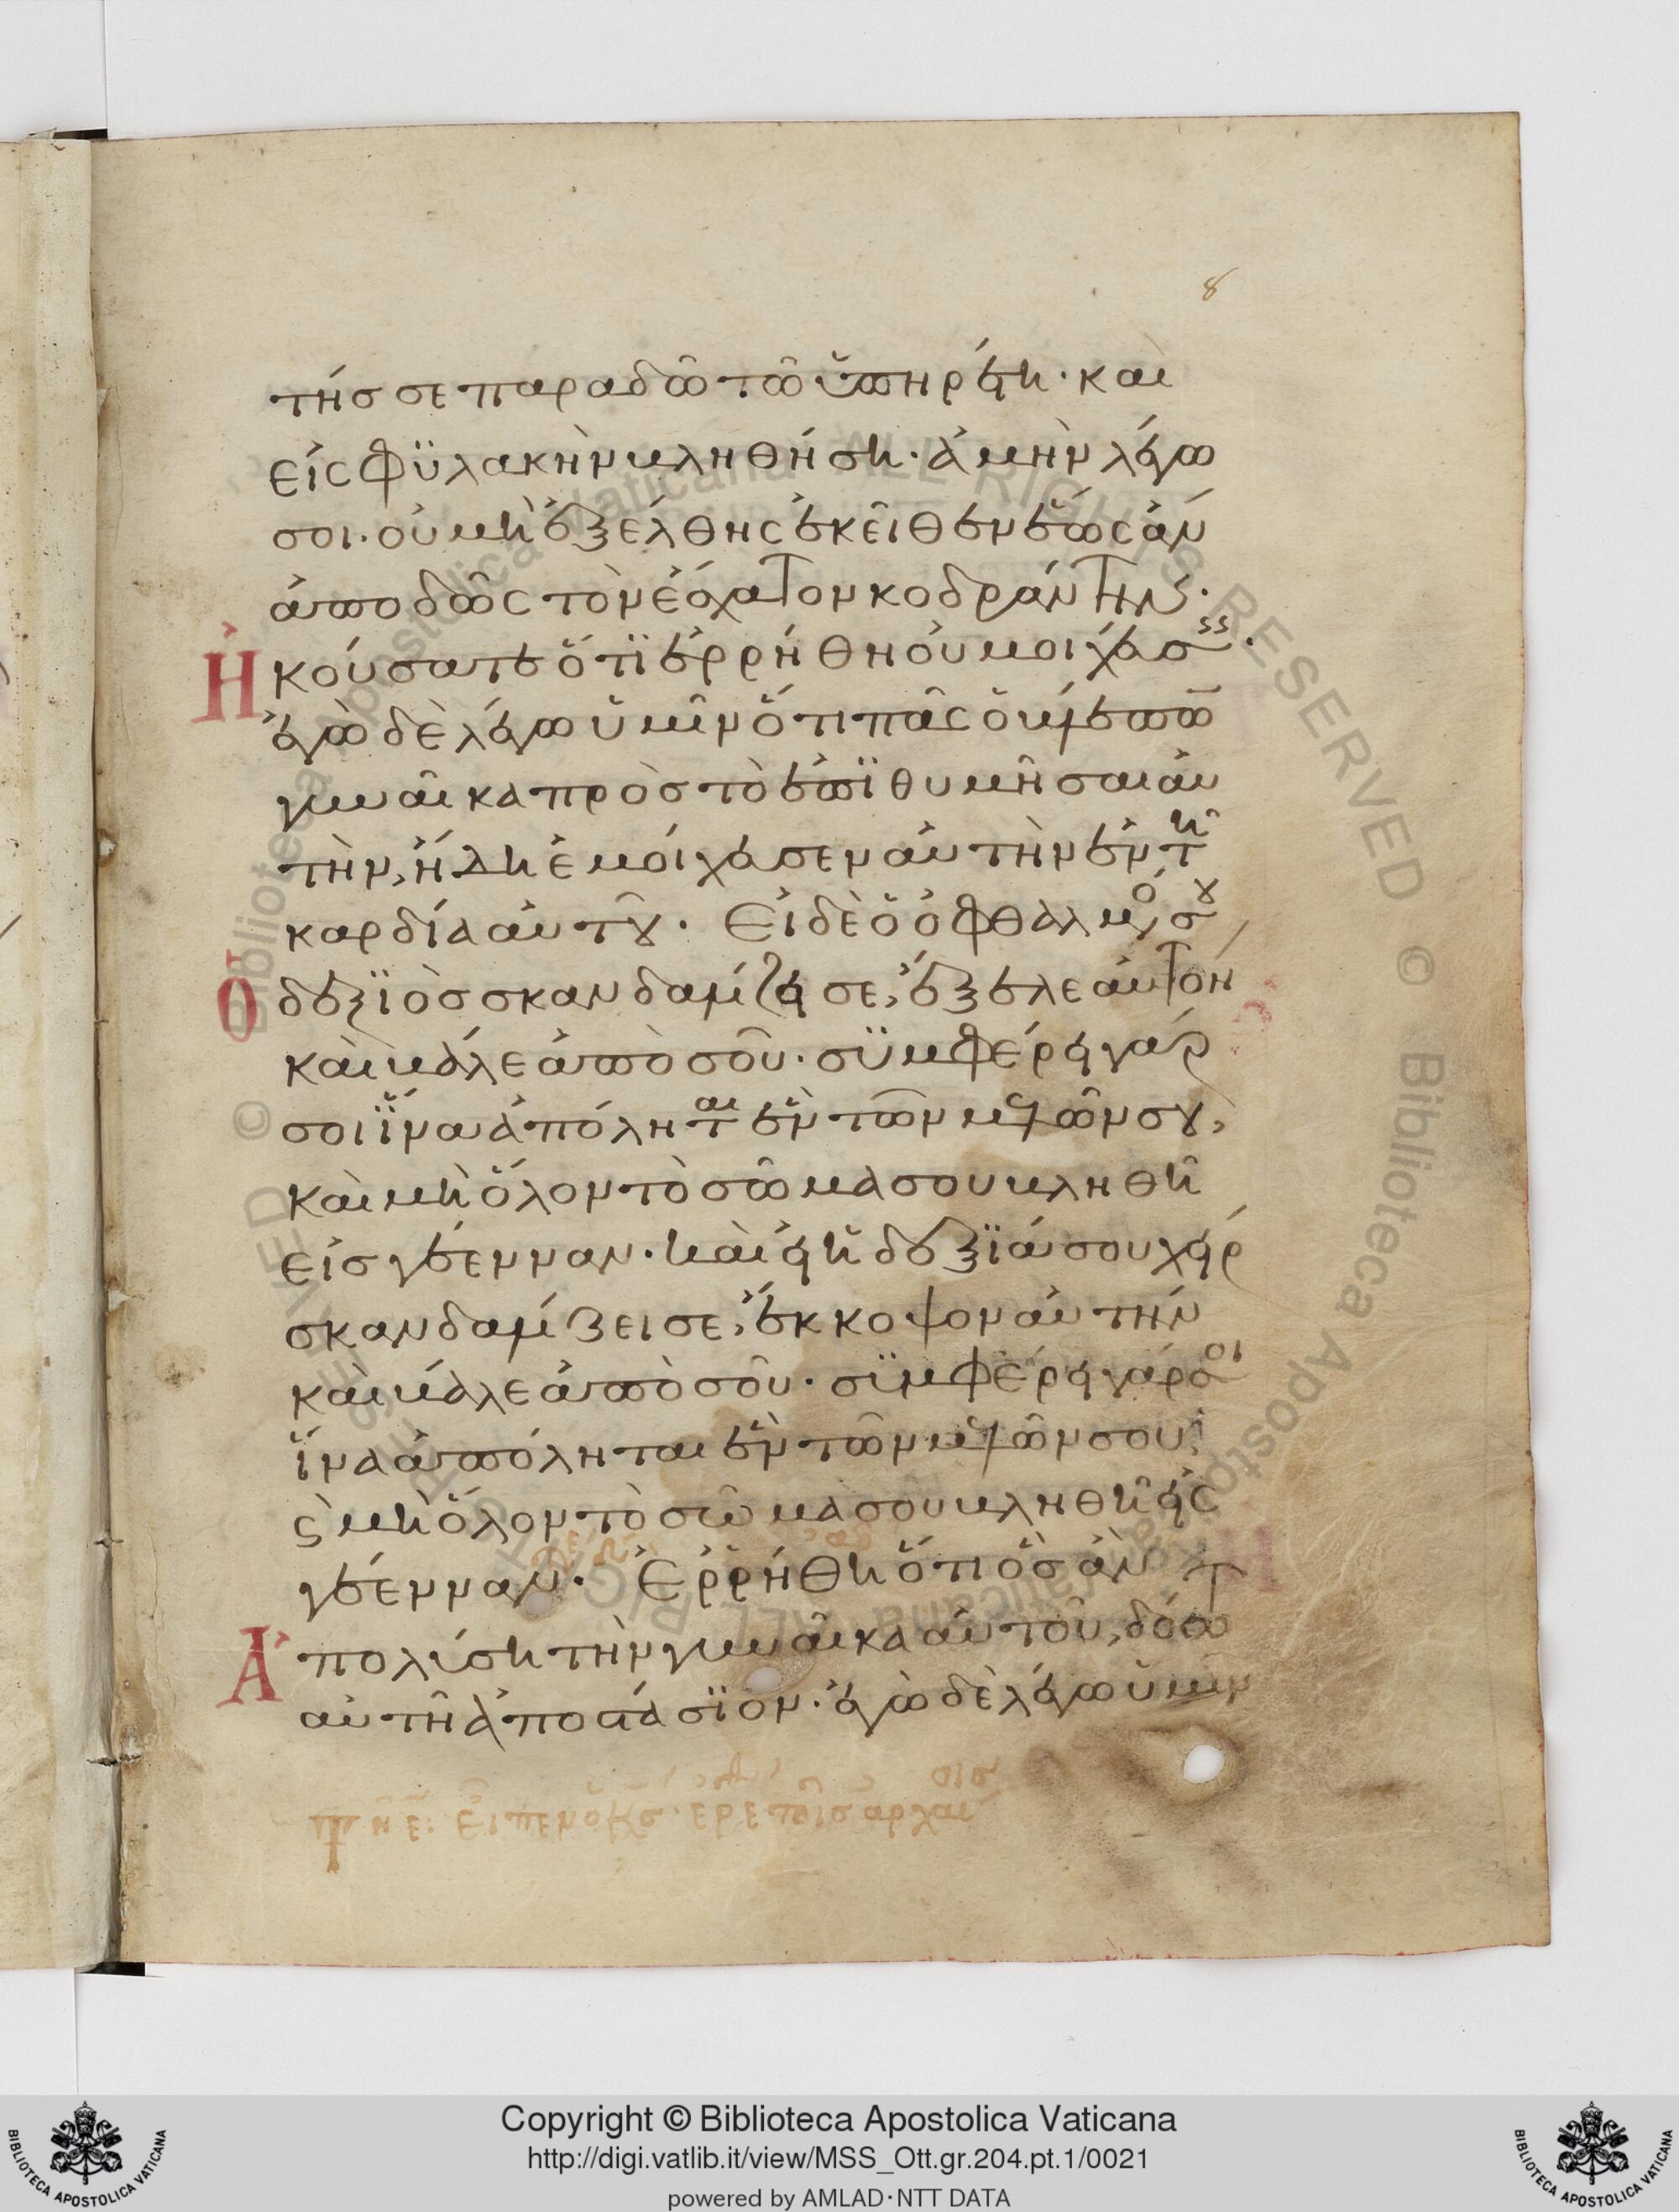 8
τήσ σε παραδῶ τῶ ὑπηρέτη· καὶ
εἰς φϋλακὴν βληθήση· ἀμὴν λέγω
σοι· οὐ μὴ ἐξέλθης ἐκεῖθεν ἕως ἂν
ἀποδῶς τὸν ἔσχατον κοδράντην·
Ἠκούσατε ὅτϊ ἐρρήθη οὐ μοιχεύσ··
ἐγὼ δὲ λέγω ὑμῖν ὅτι πᾶς ὁ βλέπω
γυναῖκα πρὸσ τὸ ἐπϊθυμῆσαι αὐ
τὴν, ἤδη ἐμοίχευσεν αὐτὴν ἐν τῆ
καρδία αὐτοῦ· Εἰ δὲ ὁ ὀφθαλμό σου
Ὁ δεξϊὸσ σκανδαλίζει σε, ἔξελε αὐτὸν
καὶ βάλε ἀπὸ σοῦ· σϋμφέρει γάρ
σοι ἵνα ἀπόληται ἓν τῶν μελῶν σου,
καὶ μὴ ὅλον τὸ σῶμα σου βληθῆ
εἰσ γέενναν· καὶ εἰ ἡ δεξϊά σου χείρ
σκανδαλίζει σε, ἔκκοψον αὐτήν
καὶ βάλε ἀπὸ σοῦ· σϋμφέρει γάρ σοι
ἵνα ἀπόληται ἓν τῶν μελῶν σου,
ϛ μὴ ὅλον τὸ σῶμα σου βληθῆ εἰς
γέενναν· Ἐρρήθη ὅτι ὃσ ἂν
Ἀπολύση τὴν γυναῖκα αὐτοῦ, δότω
αὐτῆ ἀποστάσϊον· ἐγὼ δὲ λέγω ὑμῖν
Copyright © Biblioteca Apostolica Vaticana
http://digi.vatlib.it/view/MSS_Ott.gr.204.pt.1/0021
powered by AMLAD·NTT DATA
BIBLIOTECA APOSTOLICA VATICANA
BIBLIOTECA APOSTOLICA VATICANA